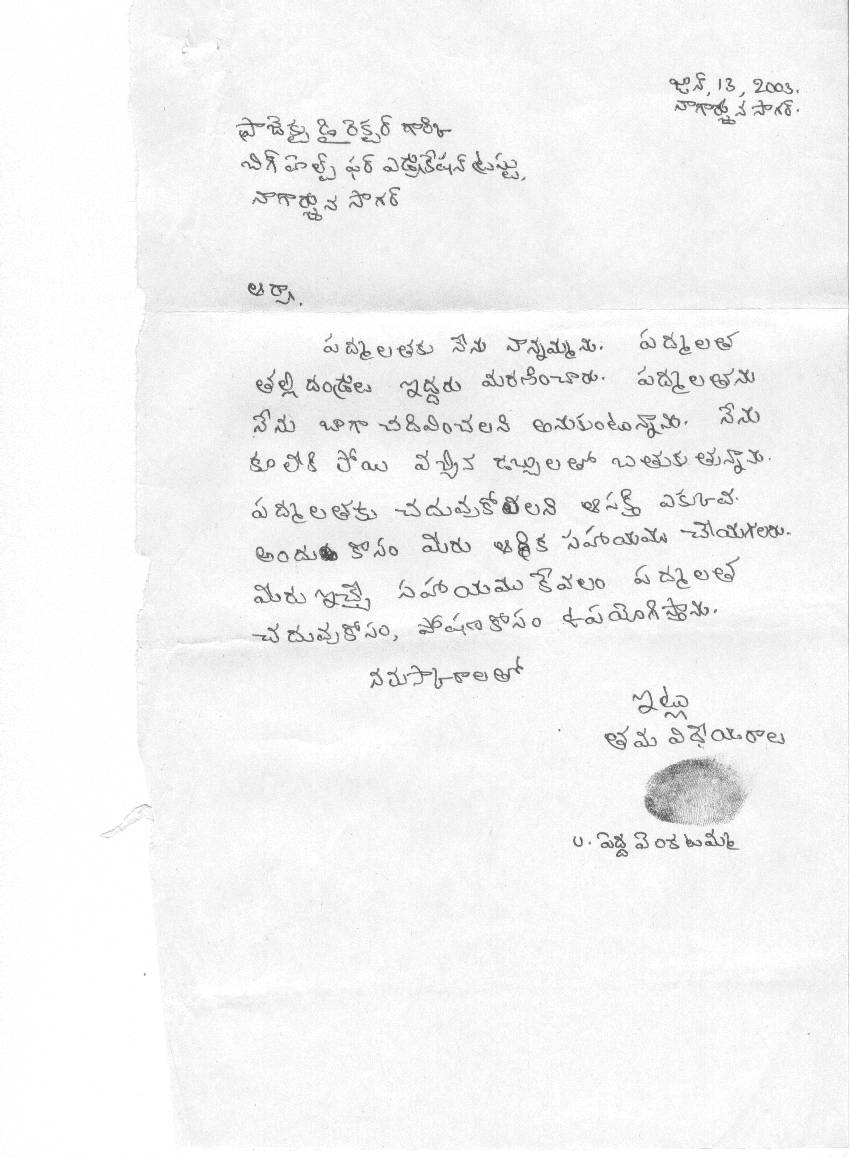 జూన్, 13, 2003.
నాగార్జున సాగర్.
ప్రాజెక్టు డైరెక్టర్ గారికి
బిగ్ హెల్ప్ ఫర్ ఎడ్యుకేషన్ ట్రస్టు,
నాగార్జున సాగర్
ఆర్యా,
పద్మాలతకు నేను నాన్నమ్మను. పద్మాలత
తల్లి దండ్రులు ఇద్దరు మరణించారు. పద్మాలతను
నేను బాగా చదివించలని అనుకుంటున్నాను. నేను
కూలికి పోయి వచ్చిన డబ్బులతో బతుకు తున్నాను.
పద్మాలతకు చదువుకోవలని ఆసక్తి ఎక్కువ.
అందుకు కోసం మీరు ఆర్థిక సహాయము చేయగలరు.
మీరు ఇచ్చే సహాయము కేవలం పద్మాలత
చదువుకోసం, పోషణకోసం ఉపయోగిస్తాను.
నమస్కారాలతో
ఇట్లు
తమ విధేయురాలు
U. పెద్ద వెంకటమ్మ